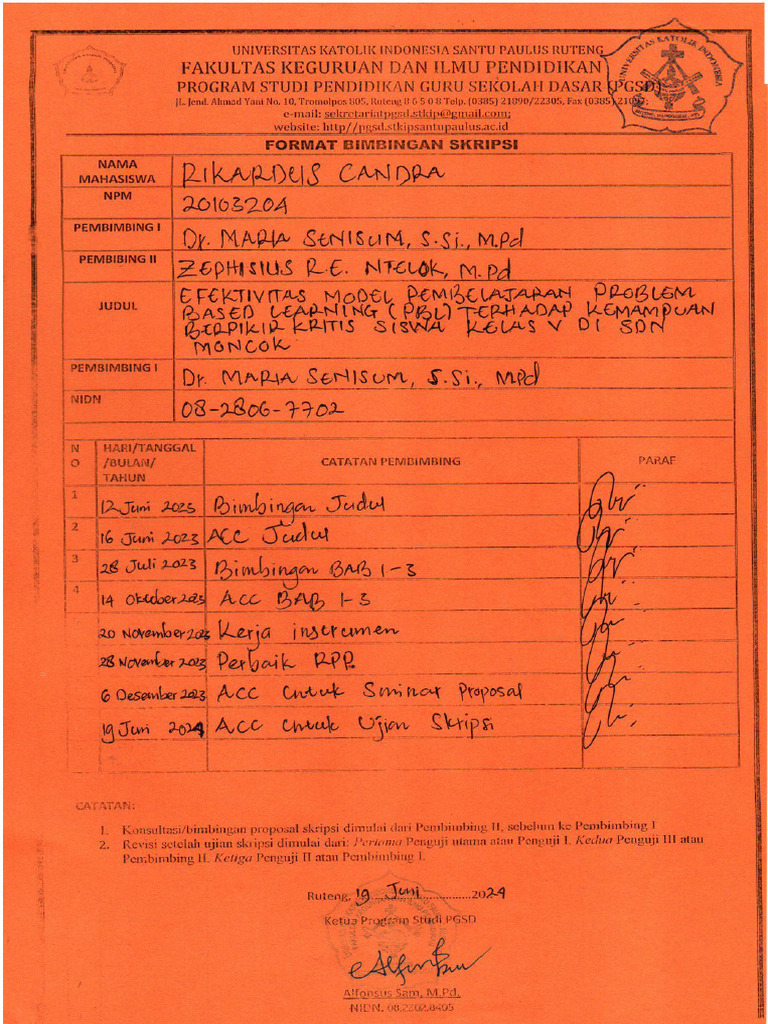 UNIVERSITAS KATOLIK INDONESIA SANTU PAULUS RUTENG
FAKULTAS KEGURUAN DAN ILMU PENDIDIKAN
PROGRAM STUDI PENDIDIKAN GURU SEKOLAH DASAR (PGSD)
JL. Jend. Ahmad Yani No. 10, Tromolpos 805, Ruteng 8 6 5 0 8 Telp. (0385) 21890/22305, Fax (0385)
e-mail: sekretariatpgsd.stkip@gmail.com;
website: http//pgsd.stkipsantupaulus.ac.id
UNIVERSITAS KATOLIK INDONESIA
FORMAT BIMBINGAN SKRIPSI
NAMA MAHASISWA RIKARDUS CANDRA
NPM 20103204
PEMBIMBING I Dr. MARIA SENISUM, S.Si., M.Pd
PEMBIBING II ZEPHISIUS R.E. NTELOK, M.Pd
JUDUL EFEKTIVITAS MODEL PEMBELAJARAN PROBLEM
BASED LEARNING (PBL) TERHADAP KEMAMPUAN
BERPIKIR KRITIS SISWA KELAS V DI SDN
MONCOK
PEMBIMBING I Dr. MARIA SENISUM, S.Si., M.Pd
NIDN 08-2806-7702
NO HARI/TANGGAL/BULAN/TAHUN CATATAN PEMBIMBING PARAF
1 12 Juni 2023 Bimbingan Judul
2 16 Juni 2023 ACC Judul
3 28 Juli 2023 Bimbingan BAB 1-3
4 14 Oktober 2023 ACC BAB 1-3
20 November 2023 Kerja instrumen
28 November 2023 Perbaik RPP
6 Desember 2023 ACC Untuk Seminar Proposal
19 Juni 2024 ACC Untuk Ujian Skripsi
CATATAN:
1. Konsultasi/bimbingan proposal skripsi dimulai dari Pembimbing II, sebelum ke Pembimbing I
2. Revisi setelah ujian skripsi dimulai dari: Pertama Penguji utama atau Penguji I. Kedua Penguji III atau
Pembimbing II. Ketiga Penguji II atau Pembimbing I.
Ruteng, 19 Juni 2024
Ketua Program Studi PGSD
Alfonsus Sam, M.Pd.
NIDN. 08.2302.8405